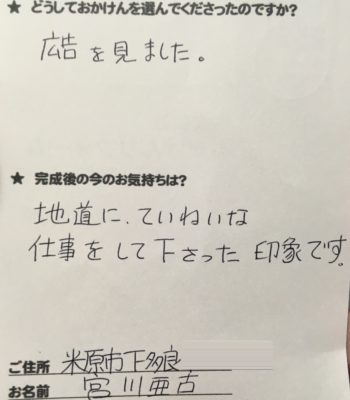 ★ どうしておかけんを選んでくださったのですか?
広告を見ました。
★ 完成後の今のお気持ちは?
地道に、ていねいな
仕事をして下さった 印象です。
ご住所 米原市下多良
お名前 宮川亜古